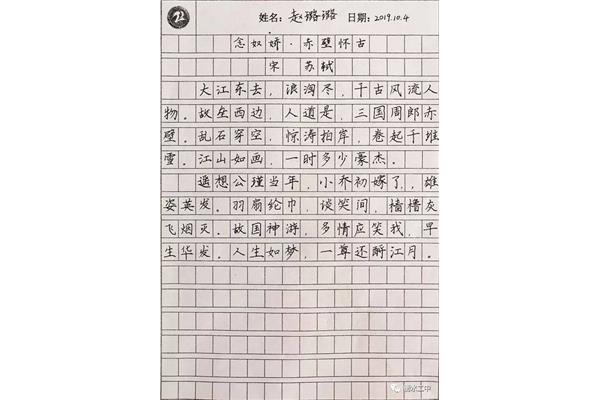 姓名：赵璐璐 日期：2019.10.4
念奴娇·赤壁怀古
宋 苏轼
大江东去，浪淘尽，千古风流人
物。故垒西边，人道是，三国周郎赤
壁。乱石穿空，惊涛拍岸，卷起千堆
雪。江山如画，一时多少豪杰。
遥想公瑾当年，小乔初嫁了，雄
姿英发。羽扇纶巾，谈笑间，樯橹灰
飞烟灭。故国神游，多情应笑我，早
生华发。人生如梦，一尊还酹江月。
衡水二中